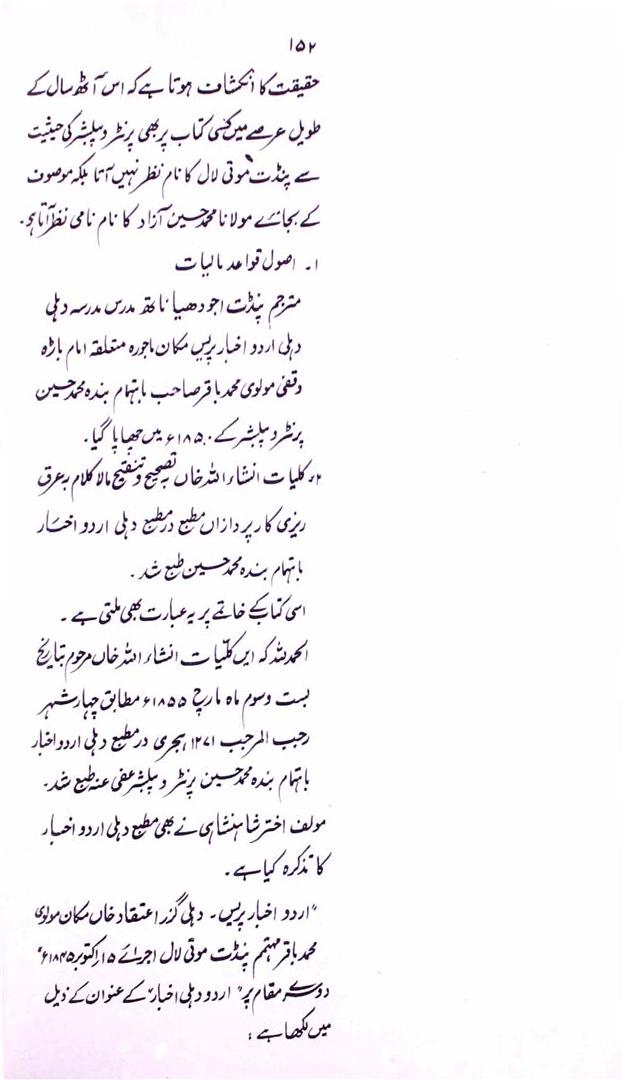 ۱۵۲
حقیقت کا انکشاف ہوتا ہے کہ اس آٹھ سال کے
طویل عرصے میں کسی کتاب پر بھی پرنٹر و پبلشر کی حیثیت
سے پنڈت موتی لال کا نام نظر نہیں آتا بلکہ موصوف
کے بجائے مولانا محمد حسین آزاد کا نام نامی نظر آتا ہے۔
۱۔ اصول قواعد مالیات
مترجم پنڈت اجودھیا ناتھ مدرس مدرسہ دہلی
دہلی اردو اخبار پریس مکان ماجورہ متعلقہ امام باڑہ
وقفی مولوی محمد باقر صاحب باہتمام بندہ محمد حسین
پرنٹر و پبلشر کے ۱۸۵۰ء میں چھاپا گیا۔
۲۔ کلیات انشاء اللہ خاں بہ تصحیح و تنقیح مالا کلام بہ عرق
ریزی کارپردازاں مطبع در مطبع دہلی اردو اخبار
باہتمام بندہ محمد حسین طبع شد۔
اسی کتاب کے خاتمے پر یہ عبارت بھی ملتی ہے۔
الحمد للہ کہ ایں کلّیات انشاء اللہ خاں مرحوم بتاریخ
بست وسوم ماہ مارچ ۱۸۵۵ء مطابق چہار شہر
رجب المرجب ۱۲۷۱ ہجری در مطبع دہلی اردو اخبار
باہتمام بندہ محمد حسین پرنٹر و پبلشر عفی عنہ طبع شد۔
مولف اختر شاہنشاہی نے بھی مطبع دہلی اردو اخبار
کا تذکرہ کیا ہے۔
"اردو اخبار پریس۔ دہلی گزر اعتقاد خاں مکان مولوی
محمد باقر مہتمم پنڈت موتی لال اجرائے ۱۵ اکتوبر ۱۸۴۵ء"
دوسرے مقام پر "اردو دہلی اخبار" کے عنوان کے ذیل
میں لکھا ہے: